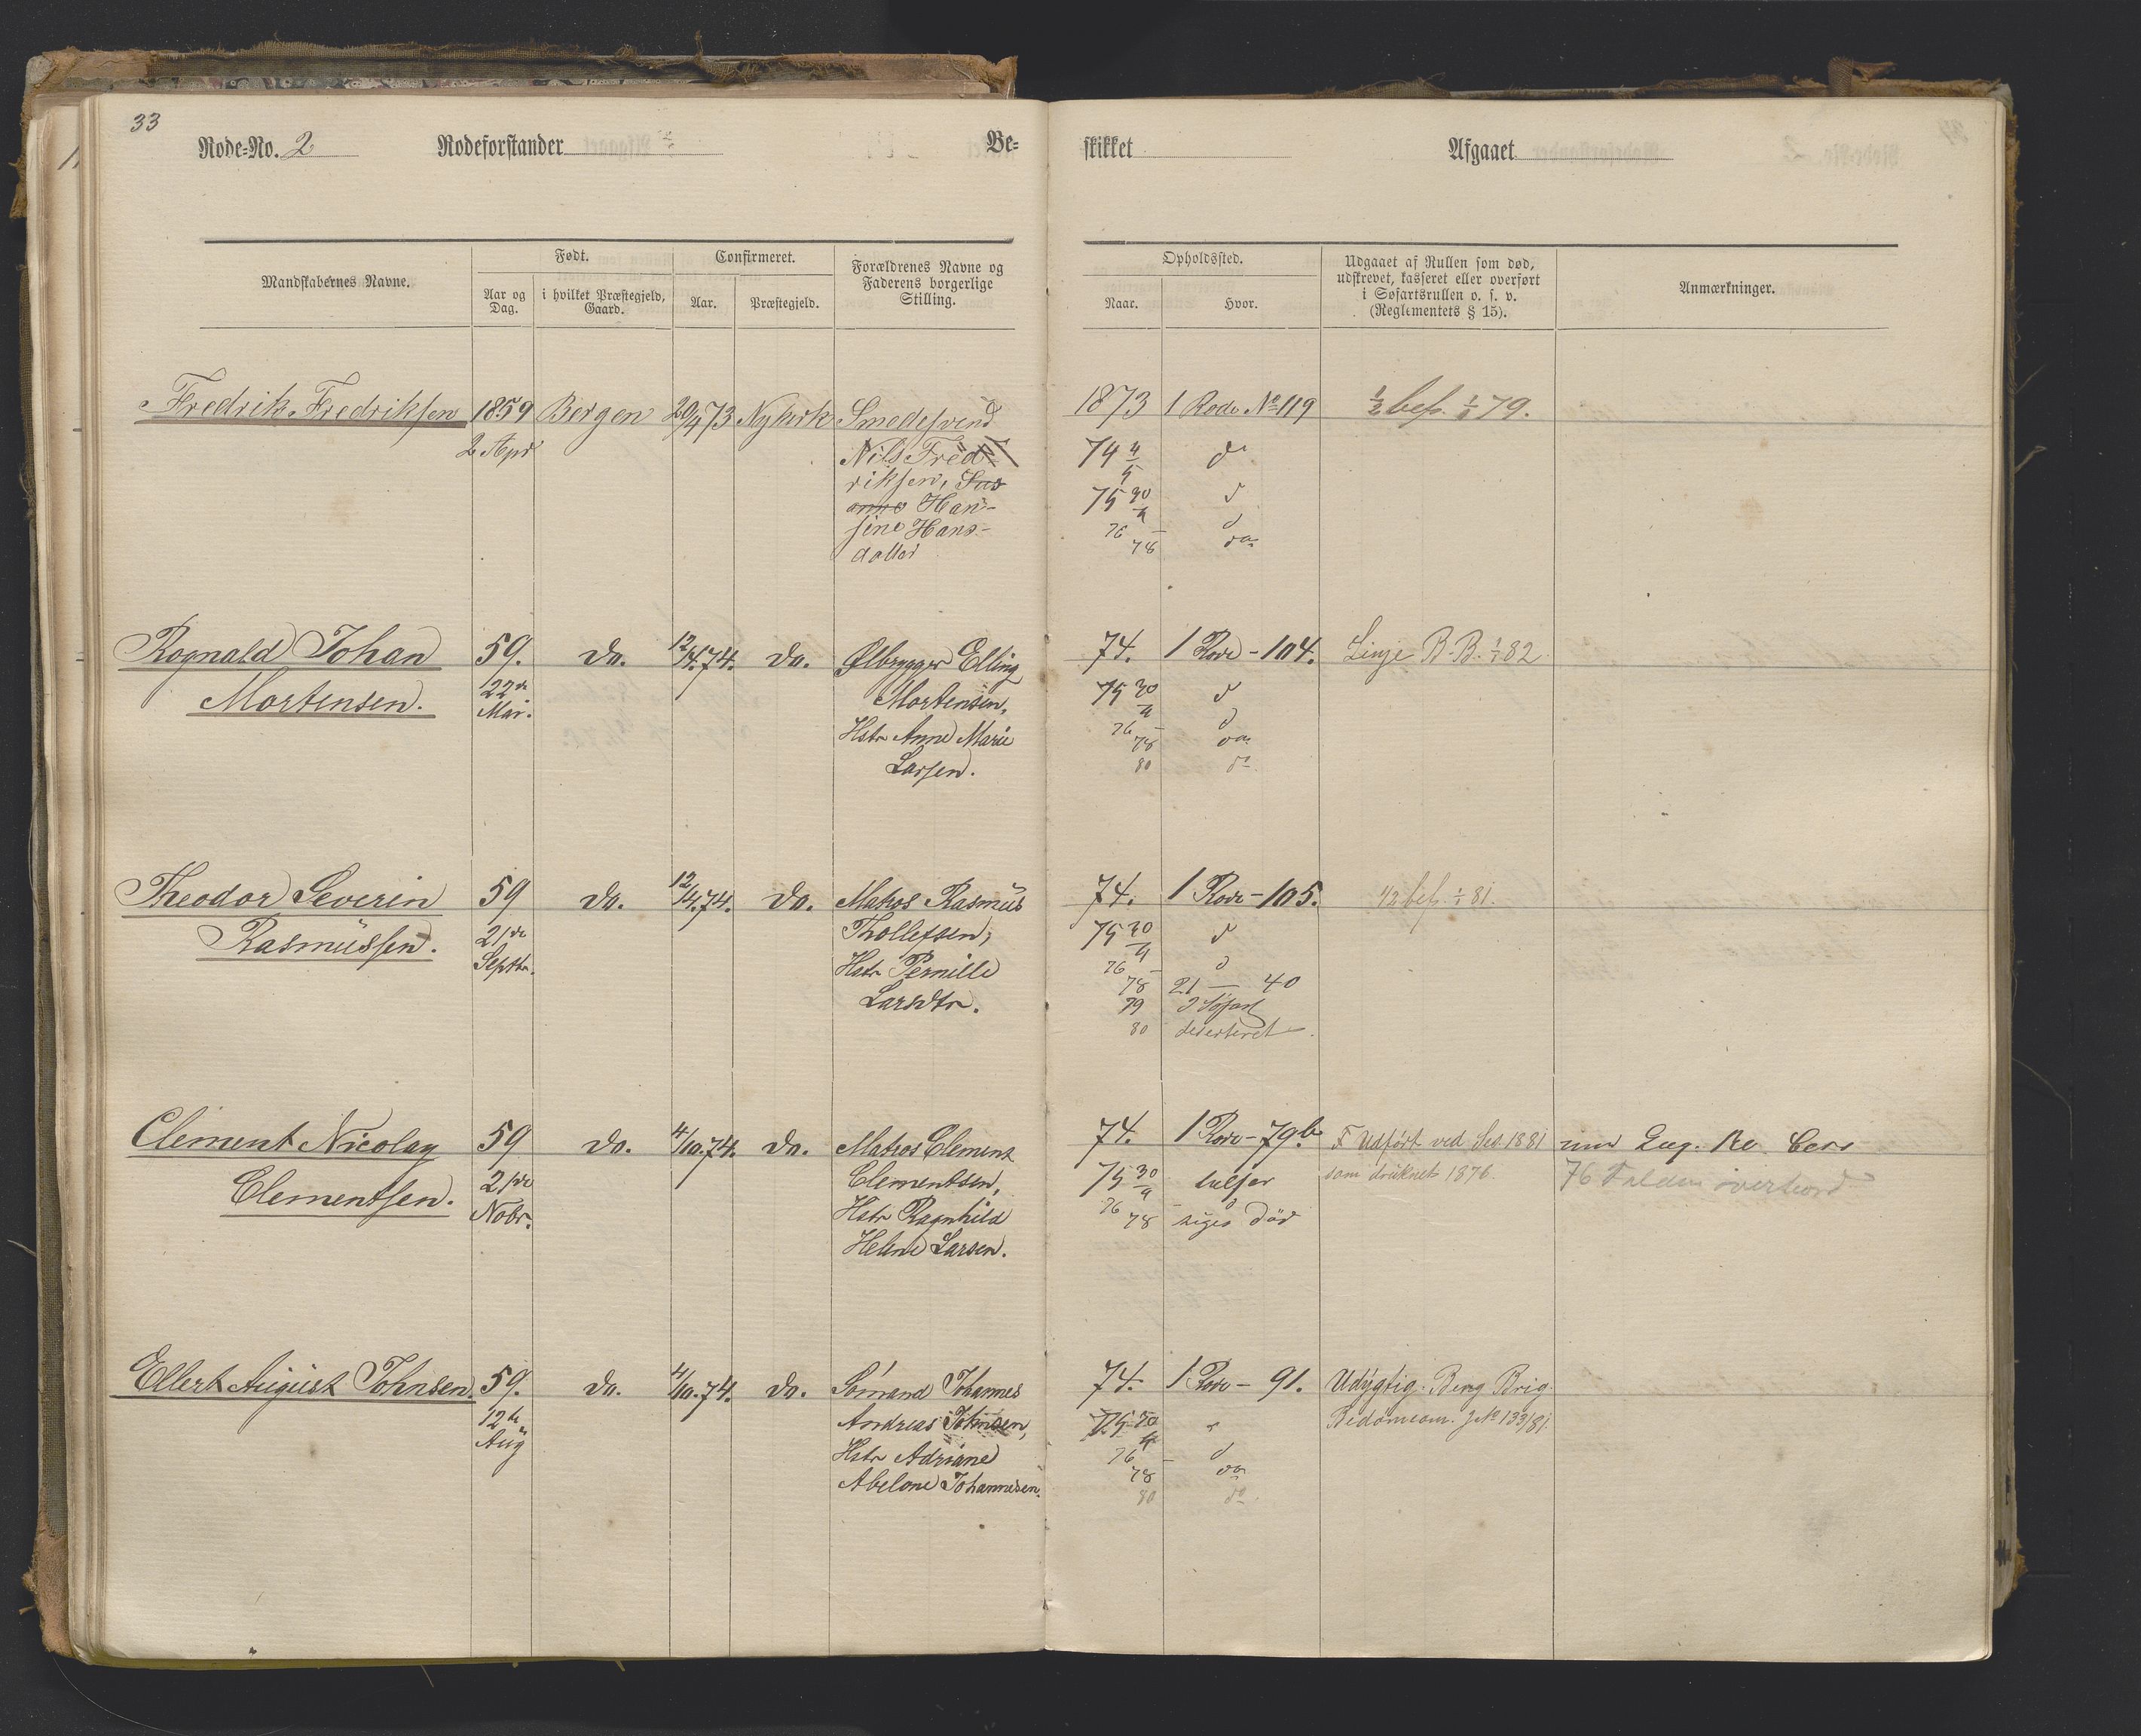 33
Rode-No. 2 Rodeforstander Be-
skikket Afgaaet
Mandskabernes Navne. Født. Confirmeret. Forældrenes Navne og Faderens borgerlige Stilling.
Aar og Dag. i hvilket Præstegjeld, Gaard. Aar. Præstegjeld.
Opholdssted. Udgaaet af Rullen som død, udskrevet, kasseret eller overført i Søfartsrullen o. s. v. (Reglementets § 15). Anmærkninger.
Naar. Hvor.
Fredrik Fredriksen 1859 Bergen 20/4 73 Nykirk Smedesvend
2 Apr Nils Fred
riksen, Sus
anne Han-
sine Hans-
datter
1873 1 Rode No 119 1/2 bef. 1/1 79.
74 4/5 do
75 30/4 d
76 d
78 do
Rognald Johan 59. do. 12/4.74. do. Ølbrygger Elling
Mortensen. 22de Mortensen,
Mai. Hstr Anne Marie
Larsen.
74. 1 Rode - 104. Linje B.B. 1/1 82
75 30/4 d
76 - d
78 do
80 do
Theodor Severin 59 do. 12/4.74. do. Matros Rasmus
Rasmussen. 21de Thollefsen,
Septbr. Hstr Pernille
Larsdtr.
74. 1 Rode - 105. 1/2 bef. 1/1 81.
75 30/4 d
76 - d
78 21 — 40
79 I Søfart
80 deserteret
Clement Nicolay 59 do. 4/10.74. do. Matros Clement
Clementsen. 21de Clementsen,
Nobr. Hstr Ragnhild
Helene Larsen.
74. 1 Rode - 79.b Udført ved Ses. 1881
75 30/4 som druknet 1876.
76 - d 76 Falden overbord
78 siges død
Ellert August Johnsen. 59. do. 4/10.74. do. Sömand Johannes
12te Andreas Johnsen,
Aug Hstr Adriane
Abelone Johannesen.
74. 1 Rode - 91. Udygtig. Berg Brig.
75 30/4 Bedömcom. J No 133/81.
76 - d
78 do
80 do